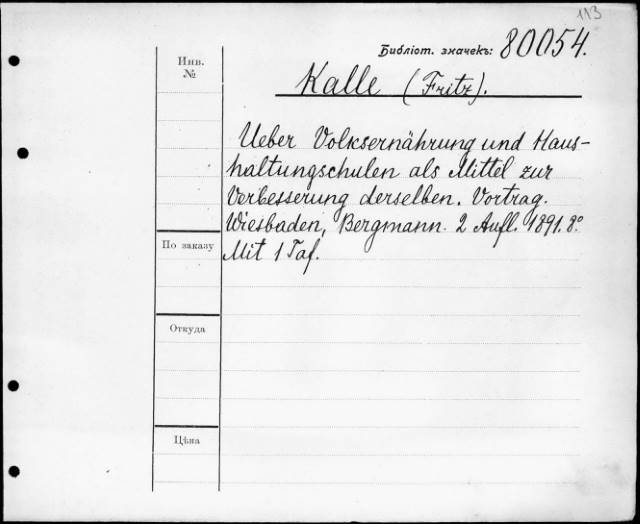 113
Библіот. значекъ: 80054.
Инв.
№
Kalle (Fritz).
Ueber Volksernährung und Haus-
haltungschulen als Mittel zur
Verbesserung derselben. Vortrag.
Wiesbaden, Bergmann. 2 Aufl. 1891. 8.°
По заказу
Mit 1 Taf.
Откуда
Цѣна